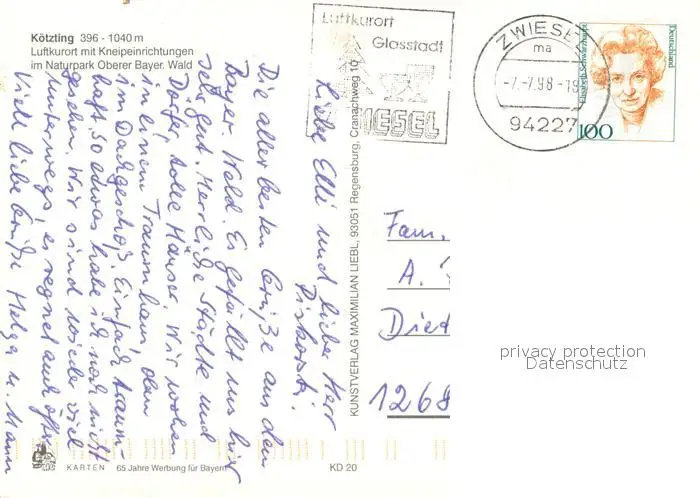 Kötzting 396 - 1040 m
Luftkurort mit Kneipeinrichtungen
im Naturpark Oberer Bayer. Wald
Liebe Elli und lieber Herr
Die allerbesten Grüße aus dem
Bayer. Wald. Es gefällt uns hier
sehr gut. Herrliche Städte und
Dörfer, tolle Häuser. Wir wohnen
in einem Traumhaus
im Dachgeschoß. Einfach traum-
haft so etwas habe ich noch nicht
gesehen. Wir sind wieder viel
unterwegs, es regnet auch öfter
Viele liebe Grüße Helga u. Mann
KUNSTVERLAG MAXIMILIAN LIEBL, 93051 Regensburg, Cranachweg 10
Luftkurort
Glasstadt
ZWIESEL
ZWIESEL
ma
-7.-7.98-18
94227
Deutschland
Elisabeth Schwarzhaupt
100
Fam.
A.
Died
1268
privacy protection
Datenschutz
KARTEN 65 Jahre Werbung für Bayern
KD 20